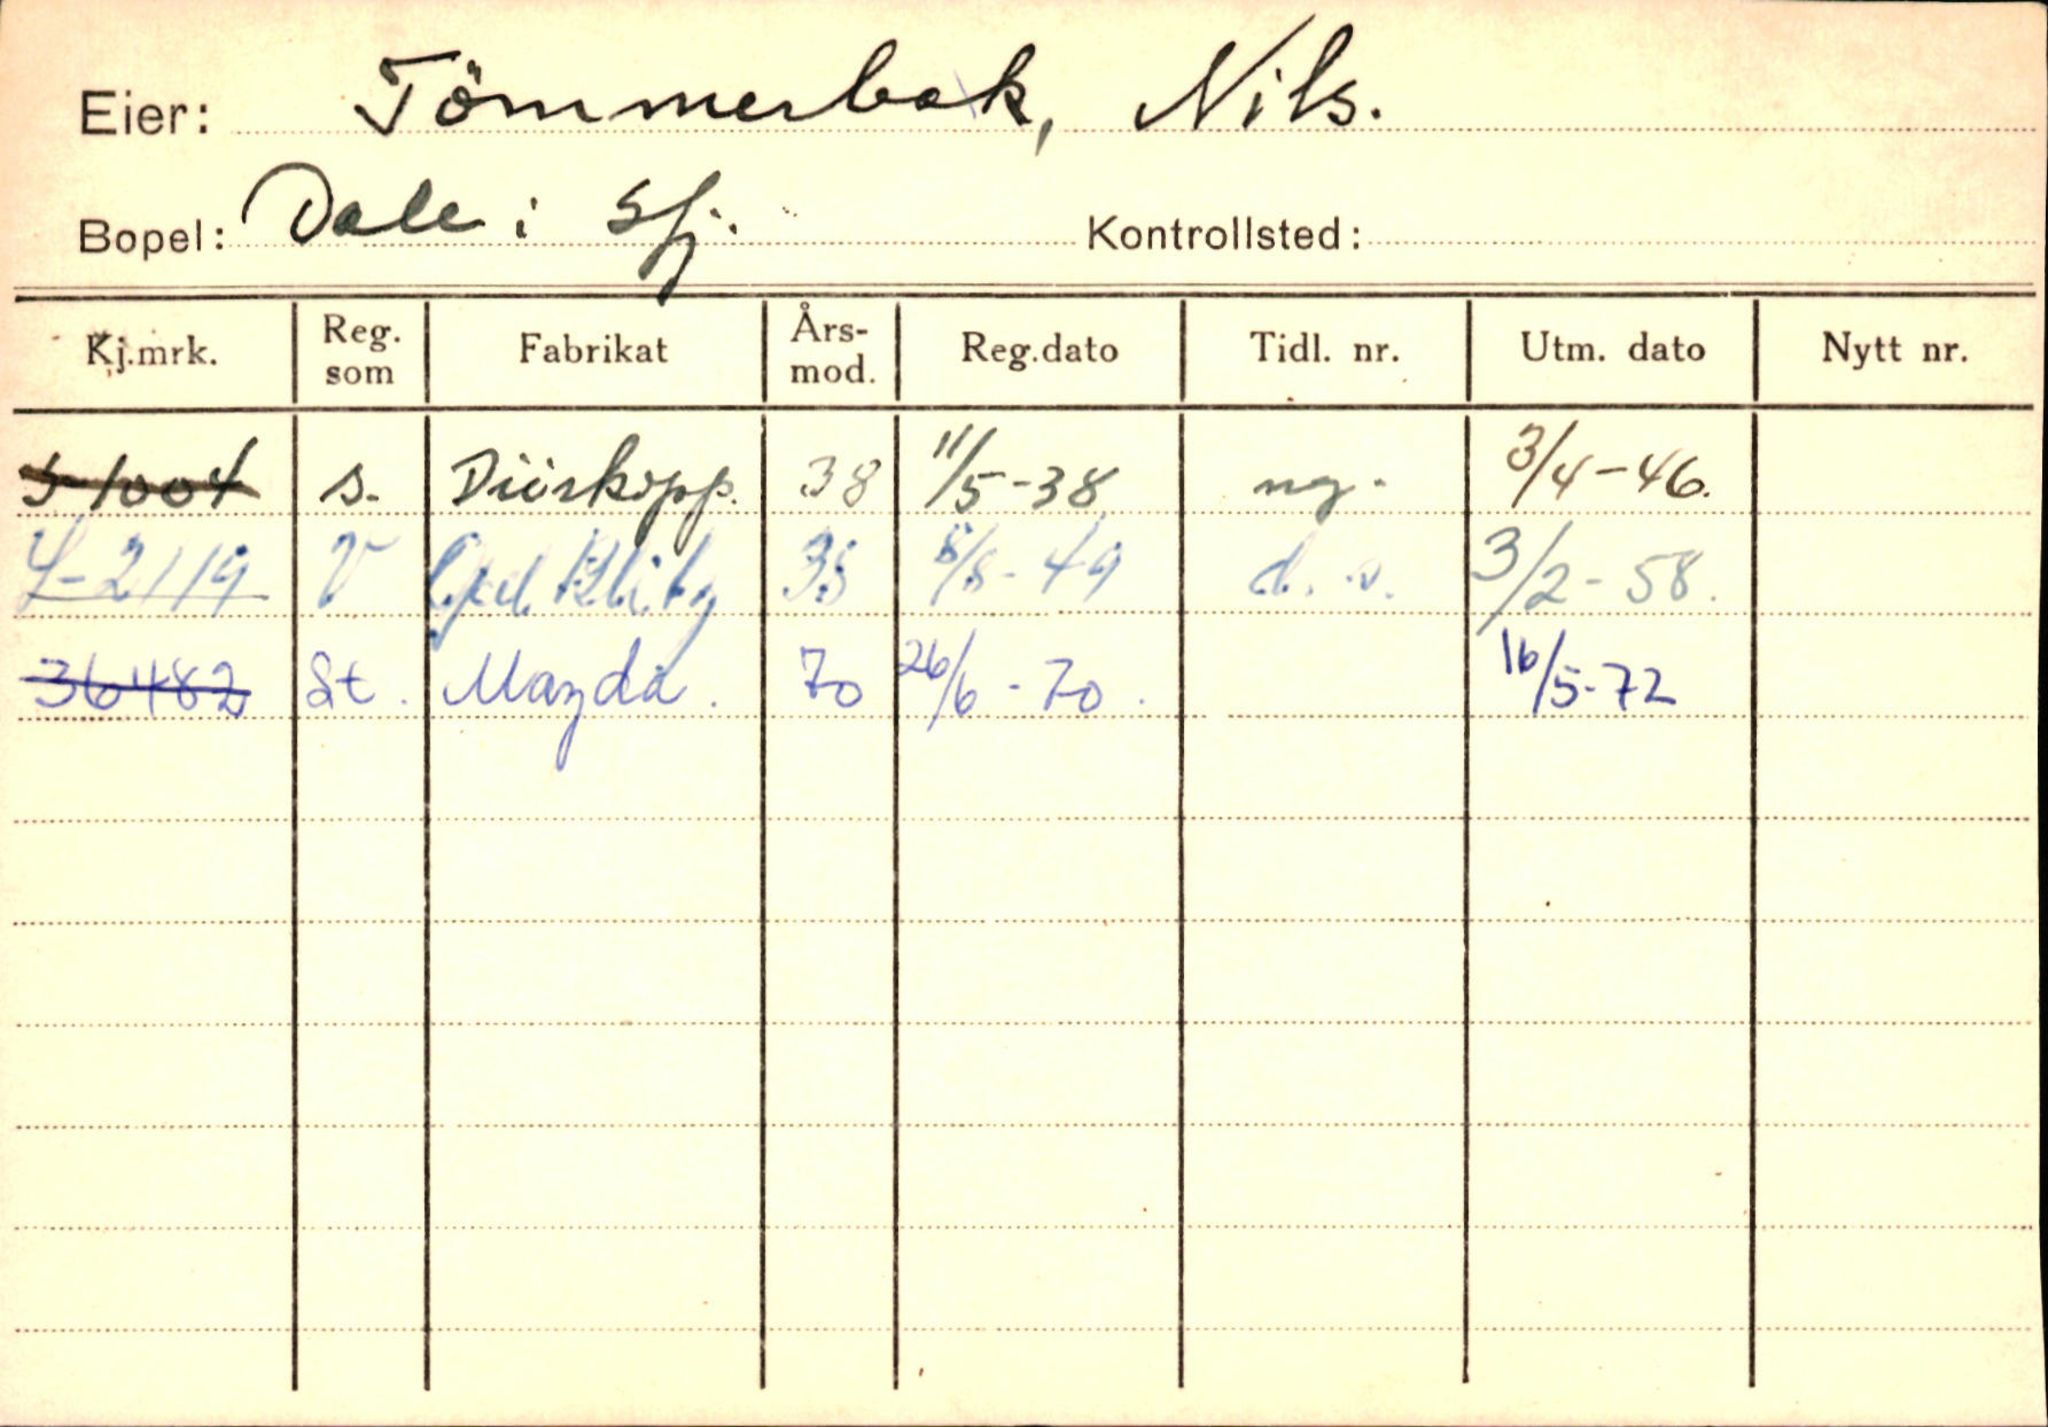 Eier: Tömmerbak, Nils.
Bopel: Dale i Sfj. Kontrollsted:
Kj.mrk. Reg. som Fabrikat Års-mod. Reg.dato Tidl. nr. Utm. dato Nytt nr.
S-1004 s. Dürkopp. 38 11/5-38 ny. 3/4-46.
S-2119 V Opel Blitz 38 8/8-49 d. s. 3/2-58.
36482 St. Mazda. 70 26/6-70. 16/5-72